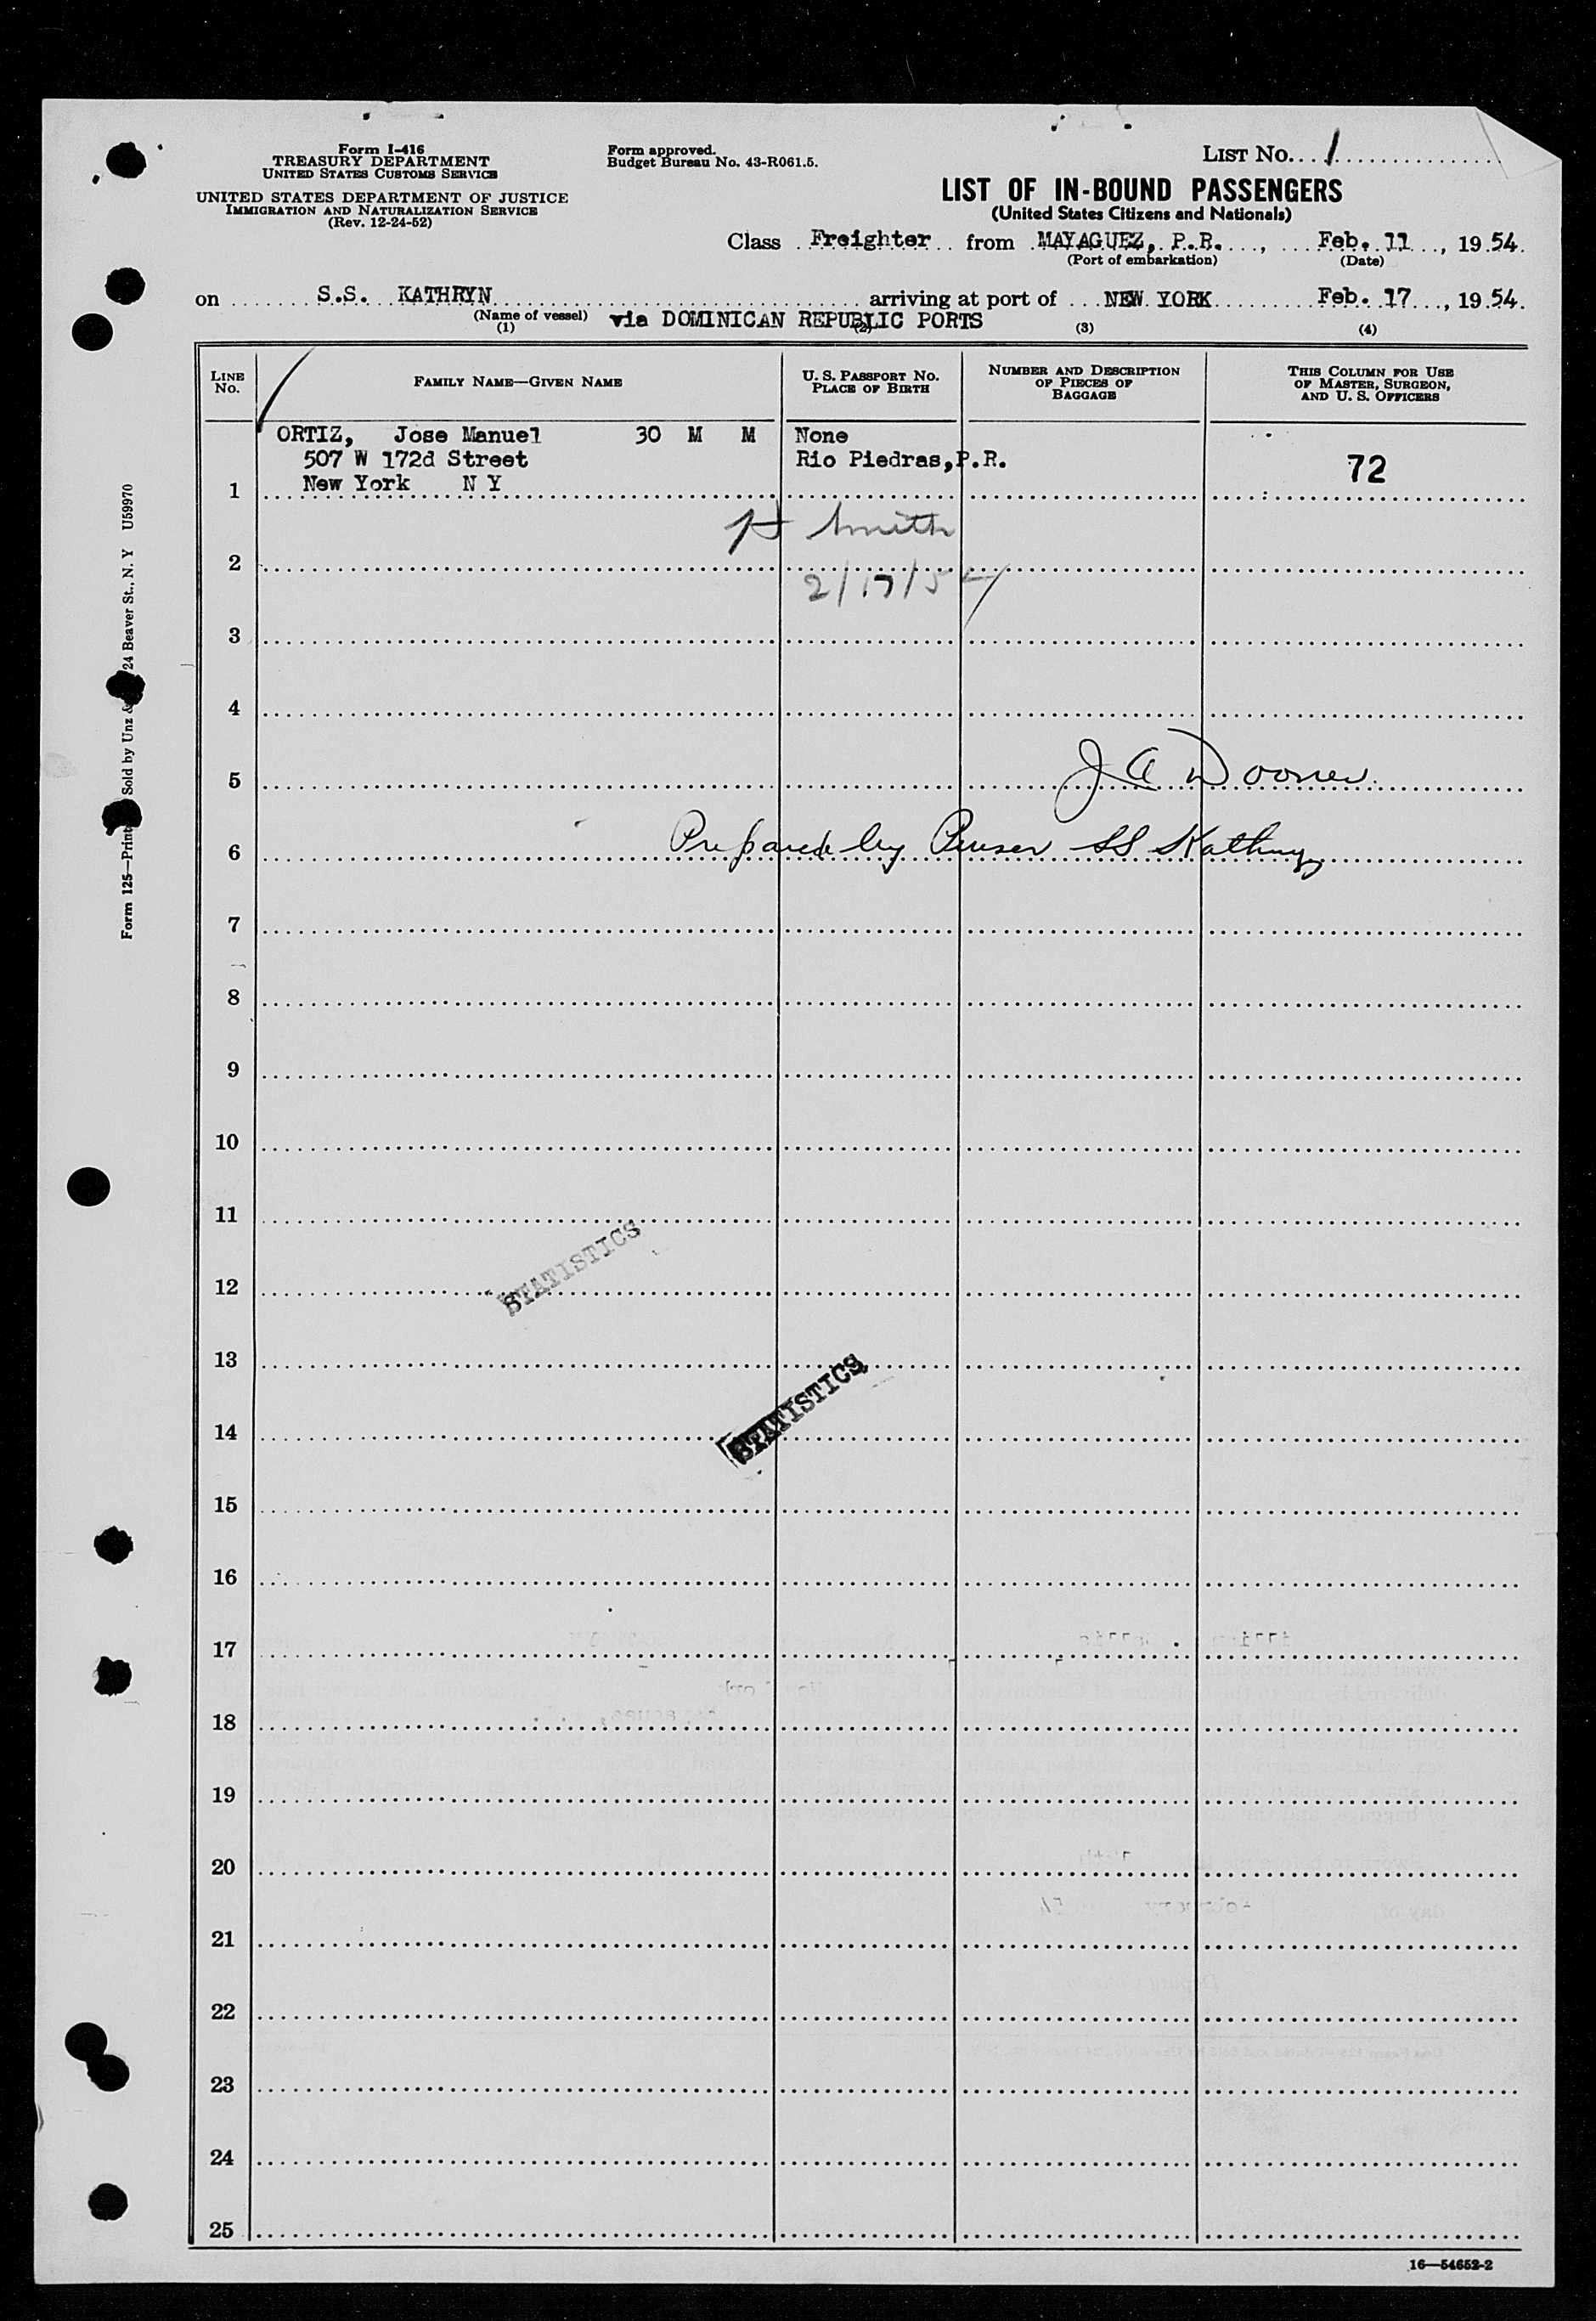 Form I-416
TREASURY DEPARTMENT
UNITED STATES CUSTOMS SERVICE
UNITED STATES DEPARTMENT OF JUSTICE
IMMIGRATION AND NATURALIZATION SERVICE
(Rev. 12-24-52)
Form approved.
Budget Bureau No. 43-R061.5.
LIST No. 1
LIST OF IN-BOUND PASSENGERS
(United States Citizens and Nationals)
Class Freighter from MAYAGUEZ, P.R., Feb. 11, 1954.
(Port of embarkation) (Date)
on S.S. KATHRYN arriving at port of NEW YORK Feb. 17, 1954.
(Name of vessel) via DOMINICAN REPUBLIC PORTS
(1) (2) (3) (4)
LINE No. FAMILY NAME—GIVEN NAME U. S. PASSPORT No. PLACE OF BIRTH NUMBER AND DESCRIPTION OF PIECES OF BAGGAGE THIS COLUMN FOR USE OF MASTER, SURGEON, AND U. S. OFFICERS
ORTIZ, Jose Manuel 30 M M None
507 W 172d Street Rio Piedras, P.R. 72
1 New York N Y
Smith
2
2/17/54
3
4
5 J A
6 Prepared by Purser SS Kathryn
7
8
9
10
11
STATISTICS
12
13
STATISTICS
14
15
16
17
18
19
20
21
22
23
24
25
16—54652-2
Form 125—Printed Sold by Unz & 24 Beaver St., N. Y U59970